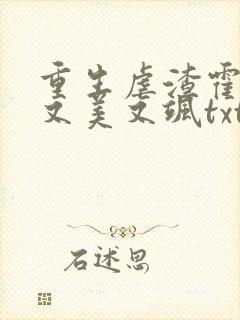 重生虐渣霍
又美又飒txt
石述思